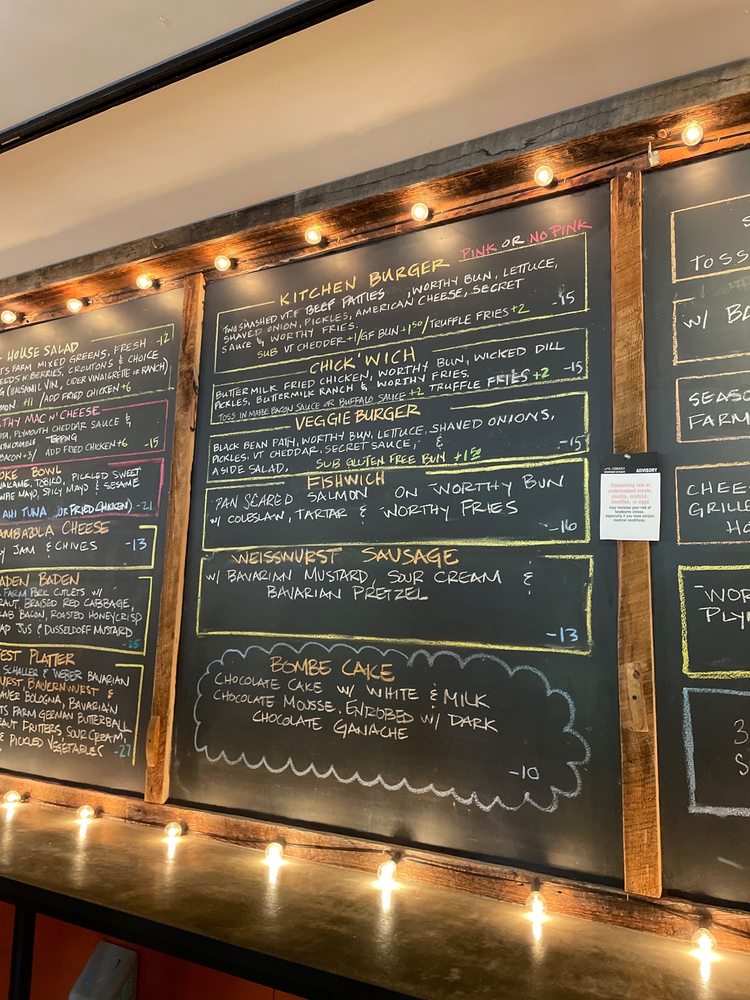 HOUSE SALAD -12
FARM MIXED GREENS, FRESH
N' BERRIES, CROUTONS & CHOICE
(BALSAMIC VIN, CIDER VINAIGRETTE OR RANCH)
+11 / ADD FRIED CHICKEN +6
MAC N' CHEESE
PLYMOUTH CHEDDAR SAUCE &
TOPPING
BACON +3/ ADD FRIED CHICKEN +6 -15
BOWL
TOBIKO, PICKLED SWEET
MAYO, SPICY MAYO & SESAME
AHI TUNA OR FRIED CHICKEN) -21
CHEESE
JAM & CHIVES -13
BADEN
FARM PORK CUTLETS W/
BRAISED RED CABBAGE,
BACON, ROASTED HONEYCRISP
JUS & DUSSELDORF MUSTARD
PLATTER
SCHALLER & WEBER BAVARIAN
BAUERNWURST &
BOLOGNA, BAVARIAN
FARM GERMAN BUTTERBALL
FRITTERS, SOUR CREAM,
PICKLED VEGETABLES -27
KITCHEN BURGER PINK OR NO PINK
TWO SMASHED VT.F BEEF PATTIES WORTHY BUN, LETTUCE,
SHAVED ONION, PICKLES, AMERICAN CHEESE, SECRET
SAUCE & WORTHY FRIES. -15
SUB VT CHEDDER +1/GF BUN +1.50/TRUFFLE FRIES +2
CHICK'WICH
BUTTERMILK FRIED CHICKEN, WORTHY BUN, WICKED DILL
PICKLES, BUTTERMILK RANCH & WORTHY FRIES. -15
TOSS IN MAPLE BACON SAUCE OR BUFFALO SAUCE +2 TRUFFLE FRIES +2
VEGGIE BURGER
BLACK BEAN PATTY, WORTHY BUN, LETTUCE, SHAVED ONIONS,
PICKLES, VT CHEDDAR, SECRET SAUCE, &
A SIDE SALAD, SUB GLUTEN FREE BUN +1.50 -15
FISHWICH
PAN SEARED SALMON ON WORTHY BUN
W/ COLESLAW, TARTAR & WORTHY FRIES
-16
WEISSWURST SAUSAGE
W/ BAVARIAN MUSTARD, SOUR CREAM &
BAVARIAN PRETZEL
-13
BOMBE CAKE
CHOCOLATE CAKE W/ WHITE & MILK
CHOCOLATE MOUSSE, ENROBED W/ DARK
CHOCOLATE GANACHE
-10
ADVISORY
Consuming raw or
undercooked meats,
poultry, seafood,
shellfish, or eggs
may increase your risk of
foodborne illness,
especially if you have certain
medical conditions.
TOSS
W/ BA
SEASO
FARM
CHEE
GRILLE
HO
WOR
PLY
3
S